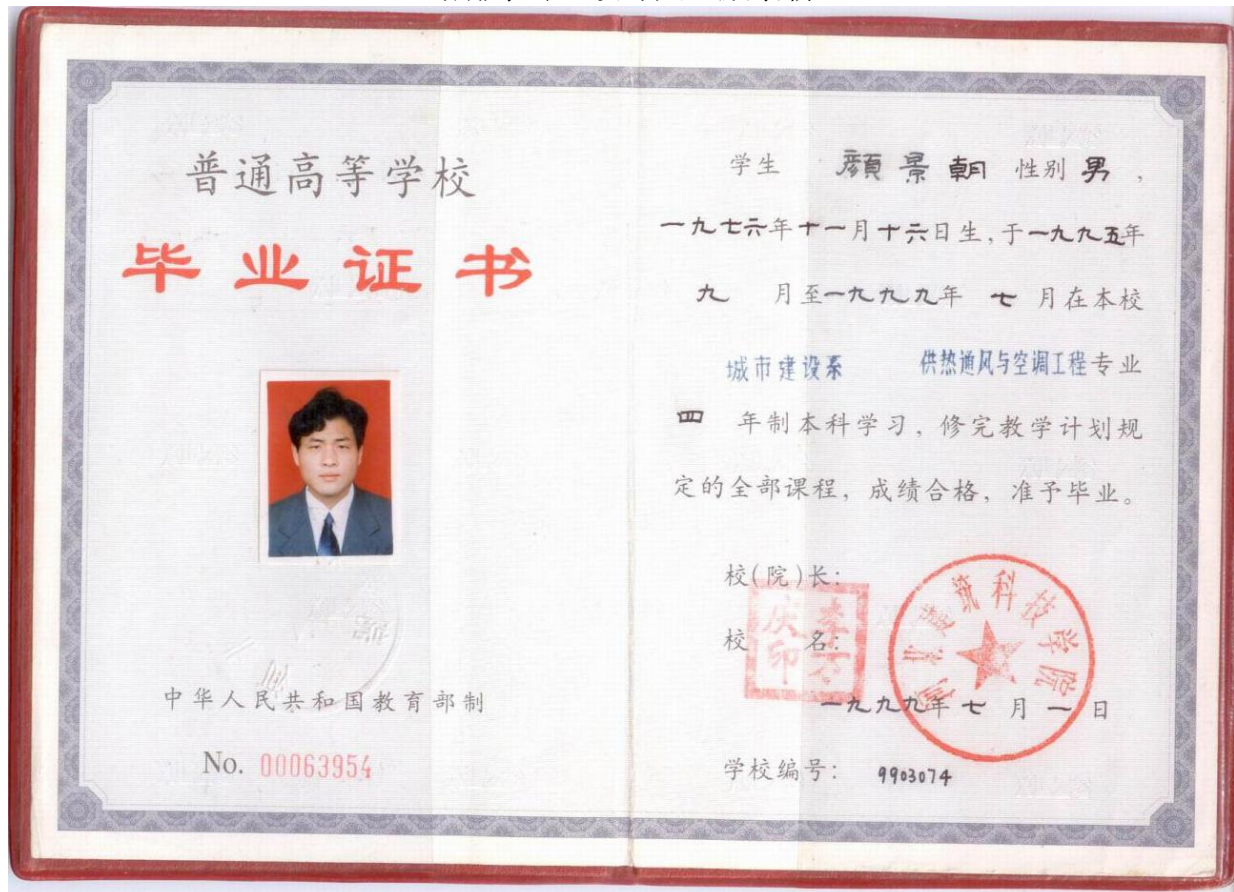 普通高等学校
毕业证书
中华人民共和国教育部制
No. 00063954
学生 顏景朝 性别 男，
一九七六年十一月十六日生，于一九九五年
九 月至一九九九年 七 月在本校
城市建设系 供热通风与空调工程专业
四 年制本科学习，修完教学计划规
定的全部课程，成绩合格，准予毕业。
校(院)长：
校 名：
河北建筑科技学院
一九九九年七月一日
学校编号： 9903074